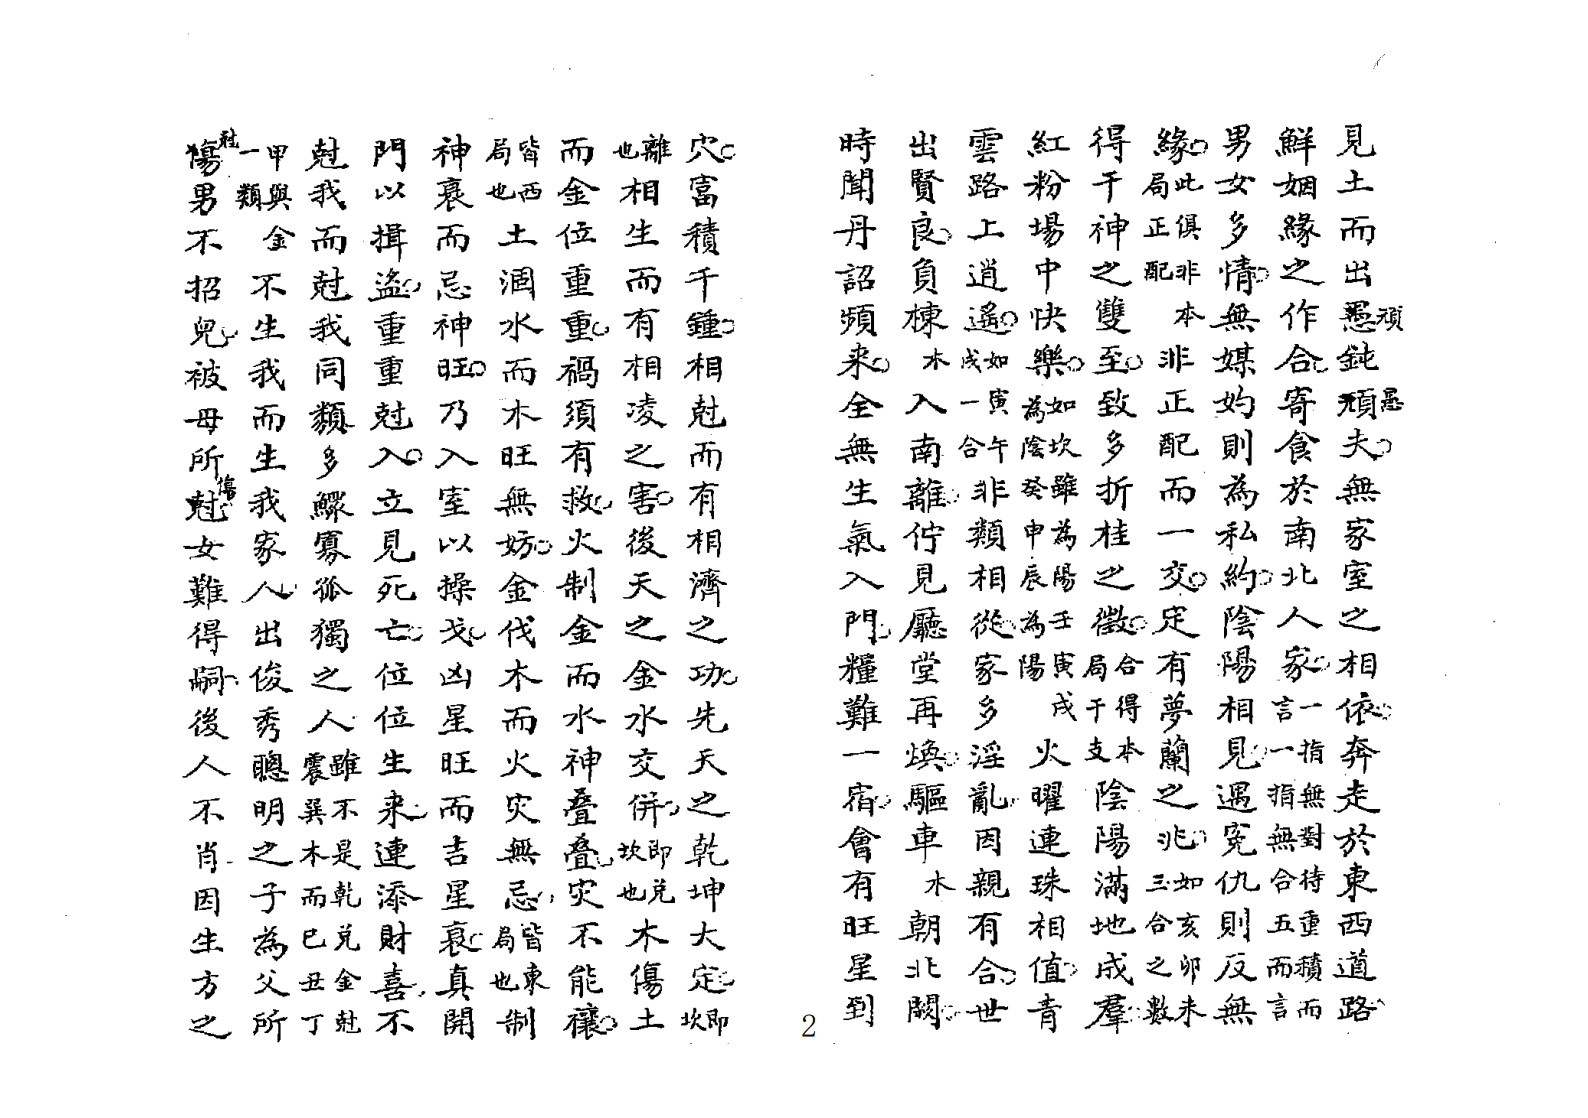 見土而出愚頑鈍頑愚夫無家室之相依奔走於東西道路
鮮姻緣之作合寄食於南北人家言一指無對待重積而言一指無合五而言
男女多情無媒妁則為私約陰陽相見遇冤仇則反無
緣此俱非本局正配非正配而一交定有夢蘭之兆如亥卯未三合之數
得干神之雙至致多折桂之徵合得本局干支陰陽滿地成羣
紅粉場中快樂如坎雖為陽壬寅戌為陰癸申辰為陽火曜連珠相值青
雲路上逍遙如寅午戌一合非類相從家多淫亂因親有合世
出賢良負棟木入南離佇見廳堂再煥驅車木朝北闕
時聞丹詔頻來全無生氣入門糧難一宿會有旺星到
穴富積千鍾相尅而有相濟之功先天之乾坤大定即坎
離也相生而有相凌之害後天之金水交併即兌坎也木傷土
而金位重重禍須有救火制金而水神叠叠災不能禳
皆西局也土涸水而木旺無妨金伐木而火災無忌皆東局也制
神衰而忌神旺乃入室以操戈凶星旺而吉星衰真開
門以揖盜重重尅入立見死亡位位生來連添財喜不
尅我而尅我同類多鰥寡孤獨之人雖不是乾兌金尅震巽木而巳丑丁
甲與金一類不生我而生我家人出俊秀聰明之子為父所
傷尅男不招兒被母所尅傷女難得嗣後人不肖因生方之
2